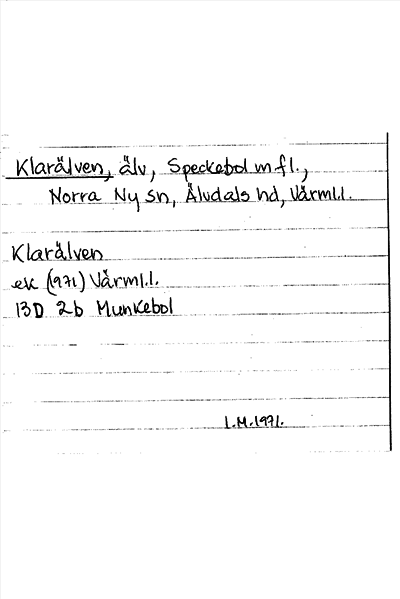 Klarälven, älv, Speckebol m fl.,
Norra Ny sn, Älvdals hd, Värml.l.
Klarälven
ek (1971) Värml.l.
13D 2b Munkebol
L.M.1971.